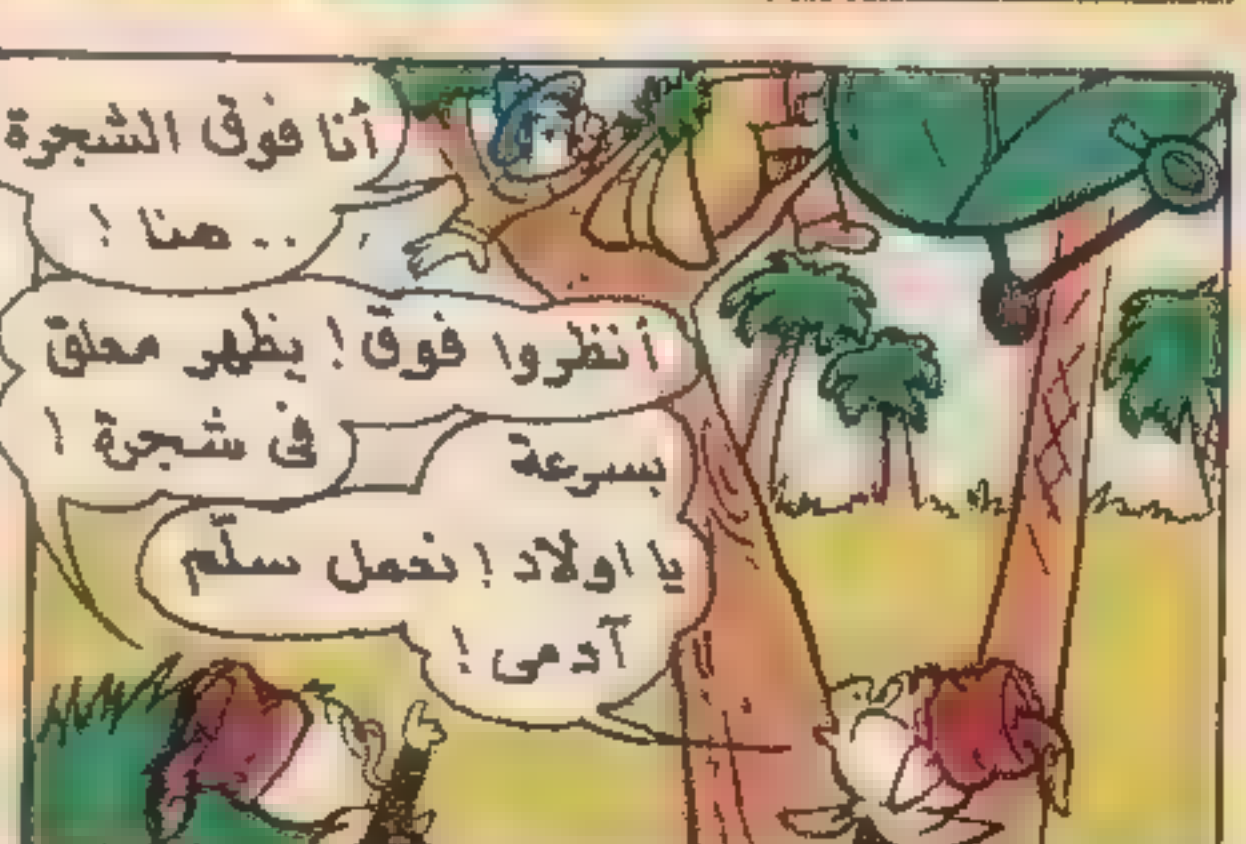 أنا فوق الشجرة
.. هنا !
أنظروا فوق ! يظهر معلق
فى شجرة !
بسرعة
يا اولاد ! نعمل سلّم
آدمى !